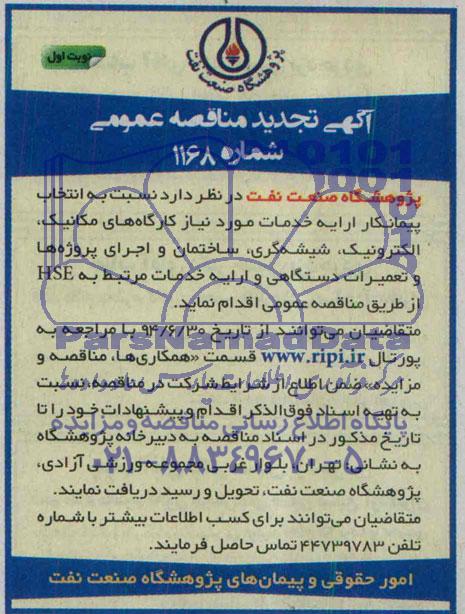 پژوهشگاه صنعت نفت
نوبت اول
آگهی تجدید مناقصه عمومی
شماره ۱۱۶۸
پژوهشگاه صنعت نفت در نظر دارد نسبت به انتخاب
پیمانکار ارایه خدمات مورد نیاز کارگاه‌های مکانیک،
الکترونیک، شیشه‌گری، ساختمان و اجرای پروژه‌ها
و تعمیرات دستگاهی و ارایه خدمات مرتبط به HSE
از طریق مناقصه عمومی اقدام نماید.
متقاضیان می‌توانند از تاریخ ۹۴/۶/۳۰ با مراجعه به
پورتال www.ripi.ir قسمت «همکاری‌ها، مناقصه و
مزایده» ضمن اطلاع از شرایط شرکت در مناقصه، نسبت
به تهیه اسناد فوق‌الذکر اقدام و پیشنهادات خود را تا
تاریخ مذکور در اسناد مناقصه به دبیرخانه پژوهشگاه
به نشانی: تهران، بلوار غربی مجموعه ورزشی آزادی،
پژوهشگاه صنعت نفت، تحویل و رسید دریافت نمایند.
متقاضیان می‌توانند برای کسب اطلاعات بیشتر با شماره
تلفن ۴۴۷۳۹۷۸۳ تماس حاصل فرمایند.
امور حقوقی و پیمان‌های پژوهشگاه صنعت نفت
ParsNamadData
پایگاه اطلاع رسانی مناقصه و مزایده
۰۲۱-۸۸۳۴۹۶۷۰-۵